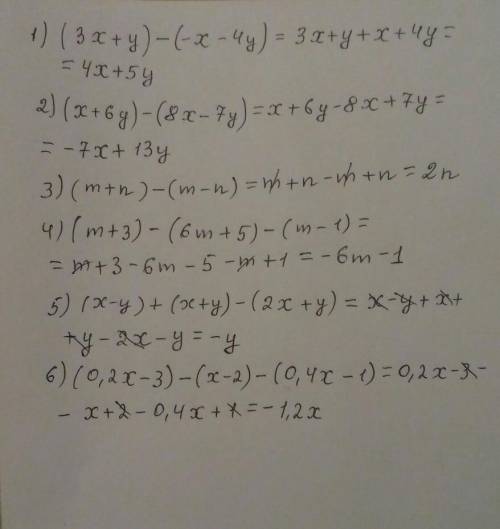 1) (3x+y)-(-x-4y)= 3x+y+x+4y=
=4x+5y
2) (x+6y)-(8x-7y)=x+6y-8x+7y=
=-7x+13y
3) (m+n)-(m-n)=m+n-m+n=2n
4) (m+3)-(6m+5)-(m-1)=
=m+3-6m-5-m+1=-6m-1
5) (x-y)+(x+y)-(2x+y)=x-y+x+
+y-2x-y=-y
6) (0,2x-3)-(x-2)-(0,4x-1)=0,2x-3-
- x+2-0,4x+1=-1,2x